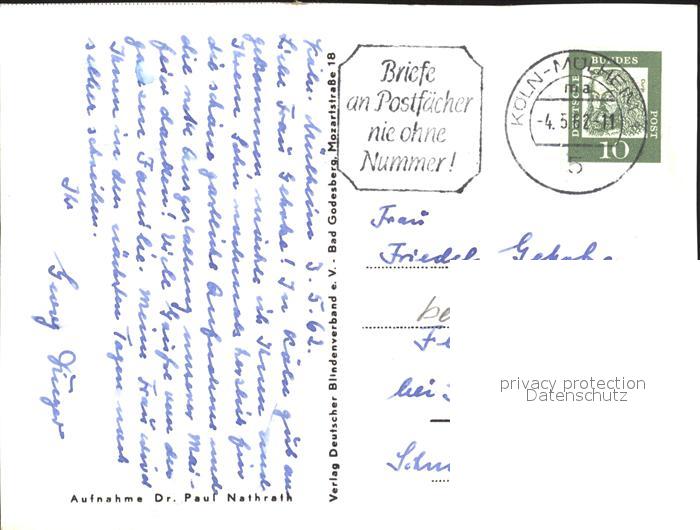 Köln-Mülheim 3.5.62.
Liebe Frau Gehrke! In Köln gut an-
gekommen möchte ich Ihnen und
Ihrem Sohn nochmals herzlich für
die schöne gastliche Aufnahme und
die nette Ausgestaltung unserer Mai-
feier danken! Viele Grüße von der
ganzen Familie. Meine Frau wird
Ihnen in den nächsten Tagen noch
selber schreiben.
Ihr
Georg
Aufnahme Dr. Paul Nathrath
Verlag Deutscher Blindenverband e. V. - Bad Godesberg, Mozartstraße 18
Briefe
an Postfächer
nie ohne
Nummer!
KÖLN-MÜLHEIM
ma
-4.5.62-11
5
DEUTSCHE
BUNDES
POST
10
Frau
Friedel
bei
privacy protection
Datenschutz